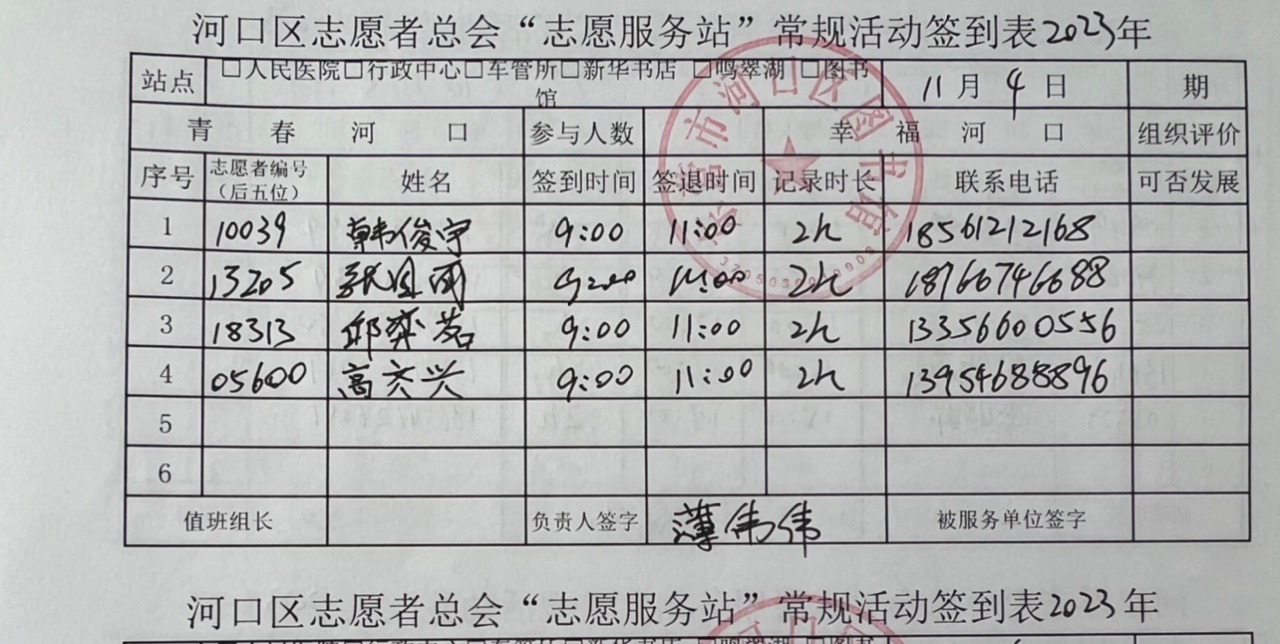 河口区志愿者总会“志愿服务站”常规活动签到表2023年
站点 □人民医院□行政中心□车管所□新华书店 □鸣翠湖 □图书馆 11月4日 期
青春河口 参与人数 幸福河口 组织评价
序号 志愿者编号（后五位） 姓名 签到时间 签退时间 记录时长 联系电话 可否发展
1 10039 韩俊宇 9:00 11:00 2h 18561212168
2 13205 9:00 11:00 2h 18766746688
3 18313 邱弈茗 9:00 11:00 2h 13356600556
4 05600 高六兴 9:00 11:00 2h 13954688896
5
6
值班组长 负责人签字 薄伟伟 被服务单位签字
东营市河口区图书馆
河口区志愿者总会“志愿服务站”常规活动签到表2023年